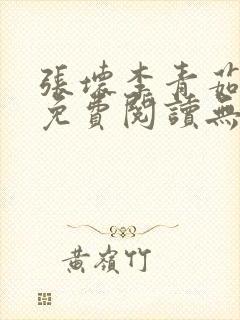 張壞李青茹
免費閱讀無
黃嶺竹